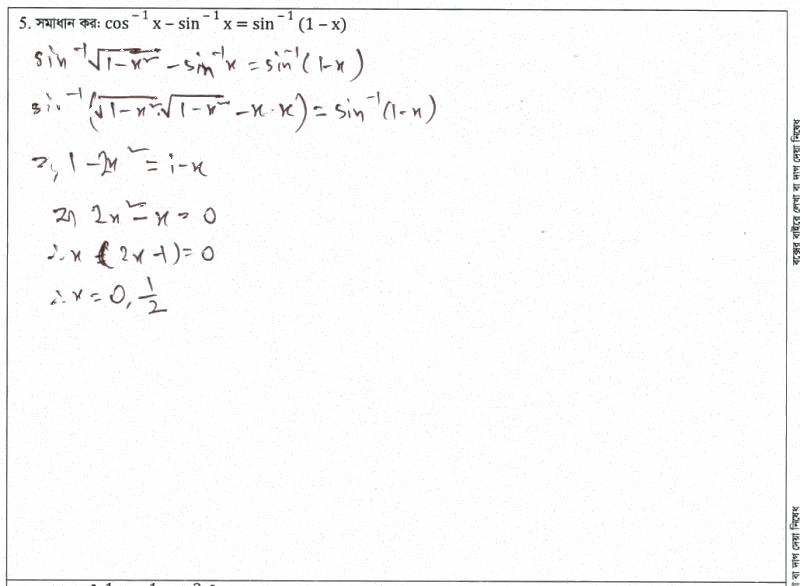 5. সমাধান কর: cos⁻¹ x – sin⁻¹ x = sin⁻¹ (1 – x)
sin⁻¹√(1-x²) - sin⁻¹x = sin⁻¹(1-x)
sin⁻¹(√(1-x²)·√(1-x²) - x·x) = sin⁻¹(1-x)
বা, 1 - 2x² = 1-x
বা 2x² - x = 0
∴ x (2x-1) = 0
∴ x = 0, 1/2
বক্সের বাইরে লেখা বা দাগ দেয়া নিষেধ
বা দাগ দেয়া নিষেধ